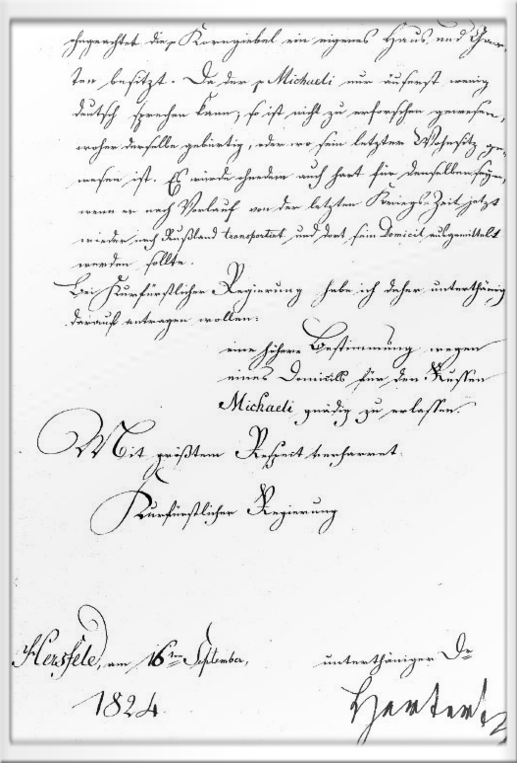 ohngeachtet die p Korngiebel ein eigenes Haus und Gar-
ten besitzt. Da der p Michaeli nur äuserst wenig
deutsch sprechen kann, so ist nicht zu erforschen gewesen,
woher derselbe gebürtig, oder wo sein letzter Wohnsitz ge-
wesen ist. Es würde ohnedem auch hart für denselben seyn,
wenn er nach Verlauf von der letzten Kriegs-Zeit jetzt
wieder nach Rußland transportirt und dort sein Domicil ausgemittelt
werden sollte.
Bei Kurfürstlicher Regierung habe ich daher unterthänig
darauf antragen wollen:
eine höhere Bestimmung wegen
eines Domicils für den Russen
Michaeli gnädig zu erlassen.
Mit größtem Respect verharret
Kurfürstlicher Regierung
Hersfeld, am 16ten September,
unterthäniger Dr
1824.
Hartert